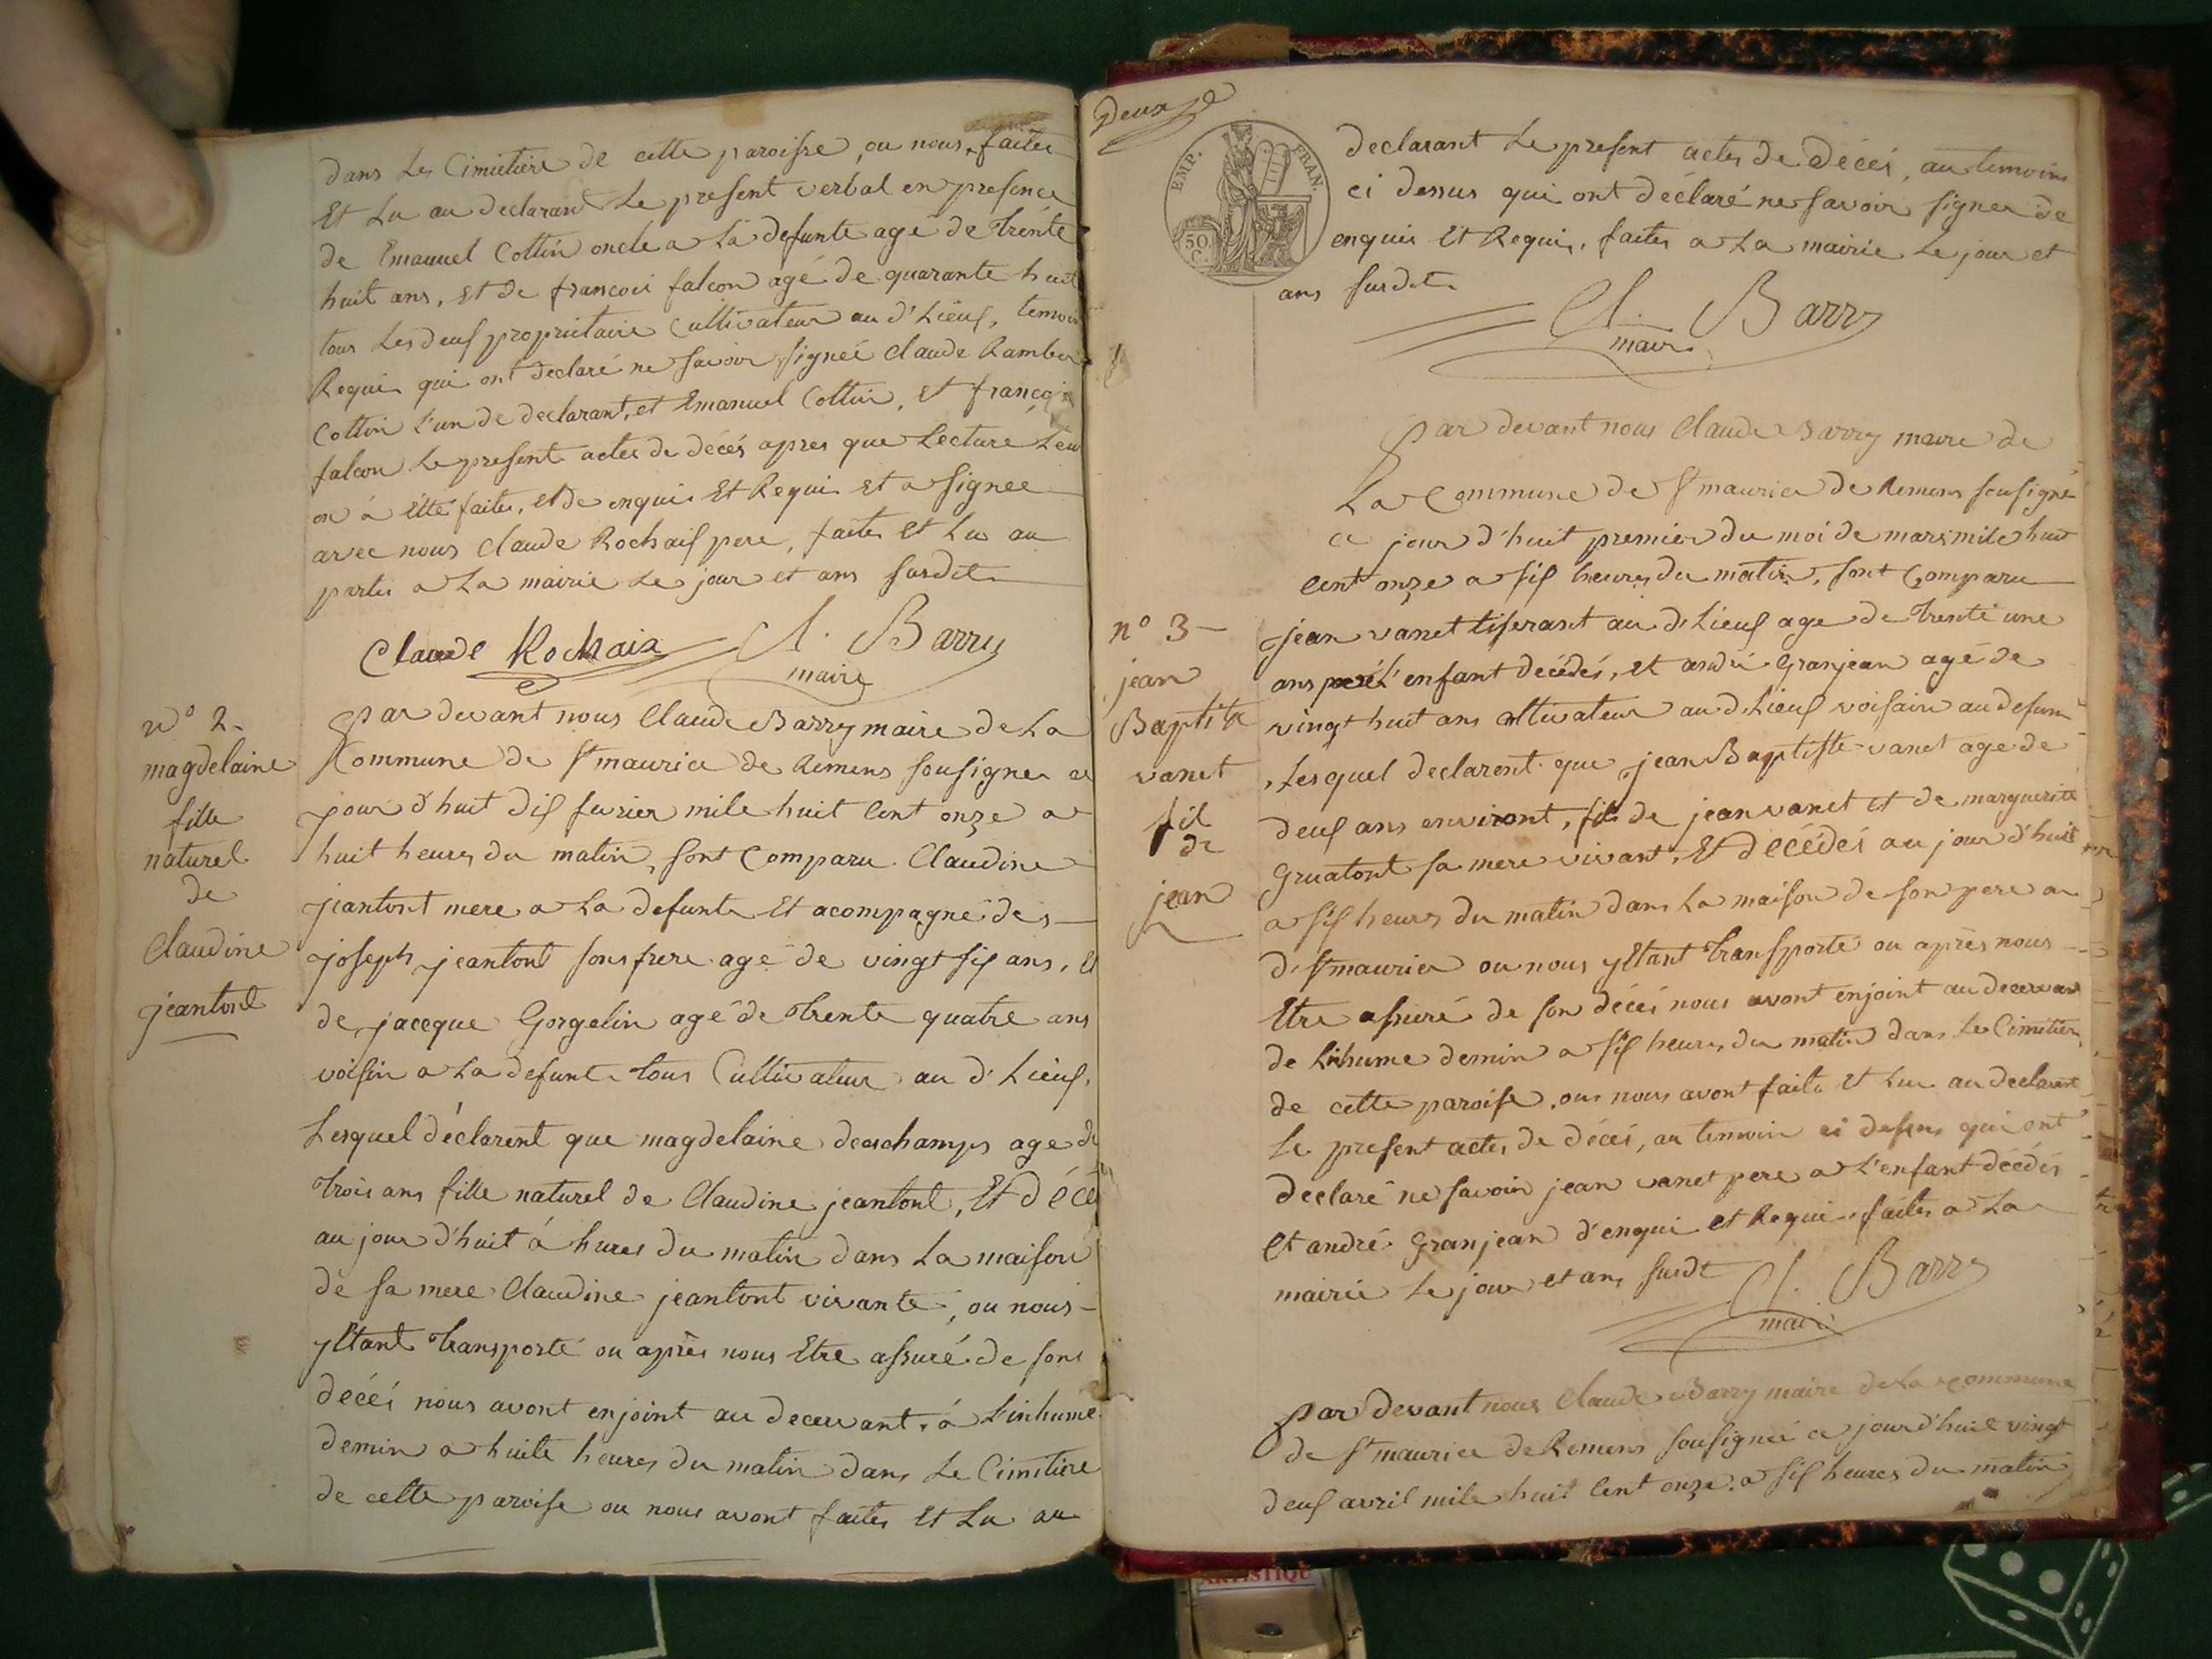 dans Le Cimitiere de cette paroisse, ou nous faites
Et Lu au declarant Le present verbal en presence
de Emanuel Cottin oncle a La defunte age de trente
huit ans, et de francois falcon agé de quarante huit
tous Les deus proprietaire Cultivateur au d' Lieus, temoin
Requis qui ont declaré ne savoir signée Claude Ramber
Cottin L'un de declarant, et Emanuel Cottin, et françois
falcon Le present actes de décés apres que Lecture Leu
on à Etté faites, et de enquis Et Requis et a signee
avec nous Claude Rochais pere, faites et Lu au
partis a La mairie Le jour et ans susdit
Claude Rochaix Cl. Barry
maire
n° 2.
magdelaine
fille
naturel
de
Claudine
jeantont
par devant nous Claude Barry maire de La
Commune de St maurice de Remens sousigner ce
jour d'huit dis fevrier mile huit Cent onze a
huit heures du matin, sont Comparu Claudine
jeantont mere a La defunte Et acompagné des
joseph jeantont sons frere age de vingt sis ans, Et
de jacque Gorgelin agé de trente quatre ans
voisin a La defunte tous Cultivateur au d' Lieus,
Lesquel déclarent que magdelaine deschamps age de
trois ans fille naturel de Claudine jeantont, Et décé
au jour d'huit à hures du matin dans La maison
de sa mere Claudine jeantont vivante, ou nous
y Etant transporté ou après nous Etre assuré de sons
décés nous avont enjoint au decervant à L'inhumé
demin a huite heures du matin dans Le Cimitiere
de cette paroise ou nous avont faites Et Lu au
Deux
EMP. FRAN.
50 C.
declarant Le present actes de Décés, au temoins
ci dessus qui ont déclaré ne savoir signer de
enquis Et Requis, faites a La mairie Le jour et
ans susdit
Cl. Barry
maire
par devant nous Claude Barry maire de
La Commune de St maurice de Remens sousigné
ce jour d'huit premier du moi de mars mile huit
Cent onze a sis heures du matin, sont Comparu
n° 3
jean
Baptiste
vanet
fil
de
jean
jean vanet tiserant au d Lieus age de trente une
ans peré L'enfant décédés, et andré Granjean agé de
vingt huit ans Cultivateur au d Lieus voisain au defunt
, Lesquel declarent que jean Baptiste vanet age de
deus ans environt, fils de jean vanet et de marguerite
Gruatont sa mere vivant, Et décédés au jour d'huit
a sis heures du matin dans La maison de son pere a
d. St maurice ou nous y Etant transporté ou après nous
Etre assuré de son décés nous avont enjoint au decervant
de L'inhume demin a sis heures du matin dans Le Cimitiere
de cette paroise, ou nous avont faits Et Lu au declarent
Le present actes de décés, au temoin ci dessus qui ont
declaré ne savoir jean vanet pere a L'enfant décédés
et andré Granjean d'enquis et Requis faites a La
mairie Le jour et ans susdt Cl. Barry
maire
par devant nous Claude Barry maire de La commune
de St maurice de Remens sousigné ce jour d'huit vingt
deus avril mile huit Cent onze a sis heures du matin
ARTISTIQU